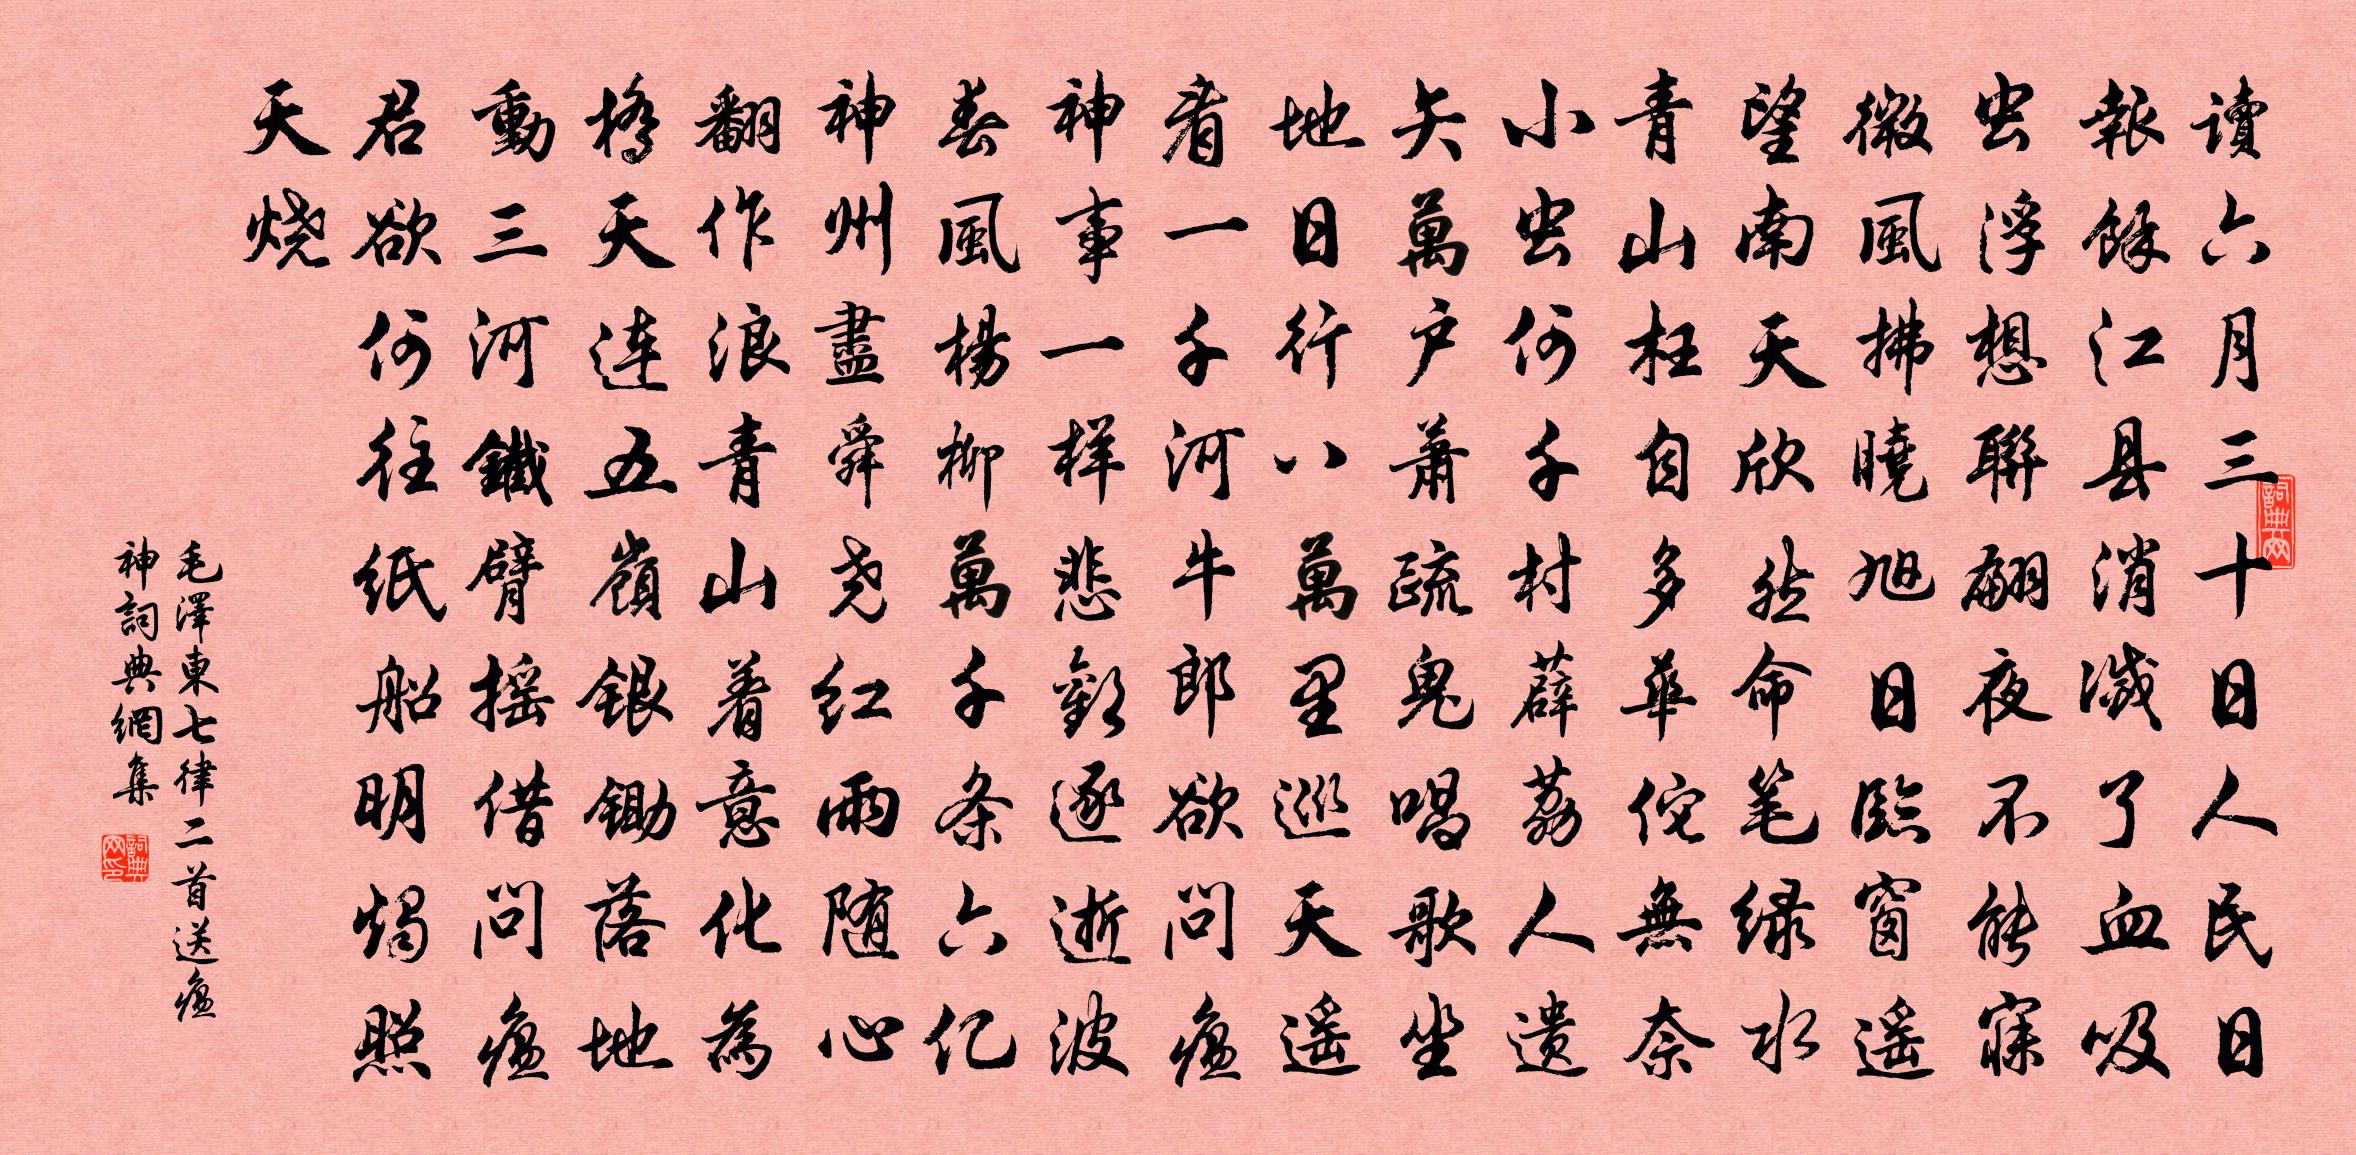 讀六月三十日人民日
報餘江县消滅了血吸
虫浮想聯翩夜不能寐
微風拂曉旭日臨窗遥
望南天欣然命笔绿水
青山枉自多華佗無奈
小虫何千村薜荔人遗
矢萬户蕭疏鬼唱歌坐
地日行八萬里巡天遥
看一千河牛郎欲問瘟
神事一样悲歡逐逝波
春風楊柳萬千条六亿
神州盡舜尧红雨随心
翻作浪青山着意化為
橋天连五嶺銀鋤落地
動三河鐵臂摇借問瘟
君欲何往纸船明燭照
天烧
毛澤東七律二首送瘟
神詞典網集
詞典网
詞典网印